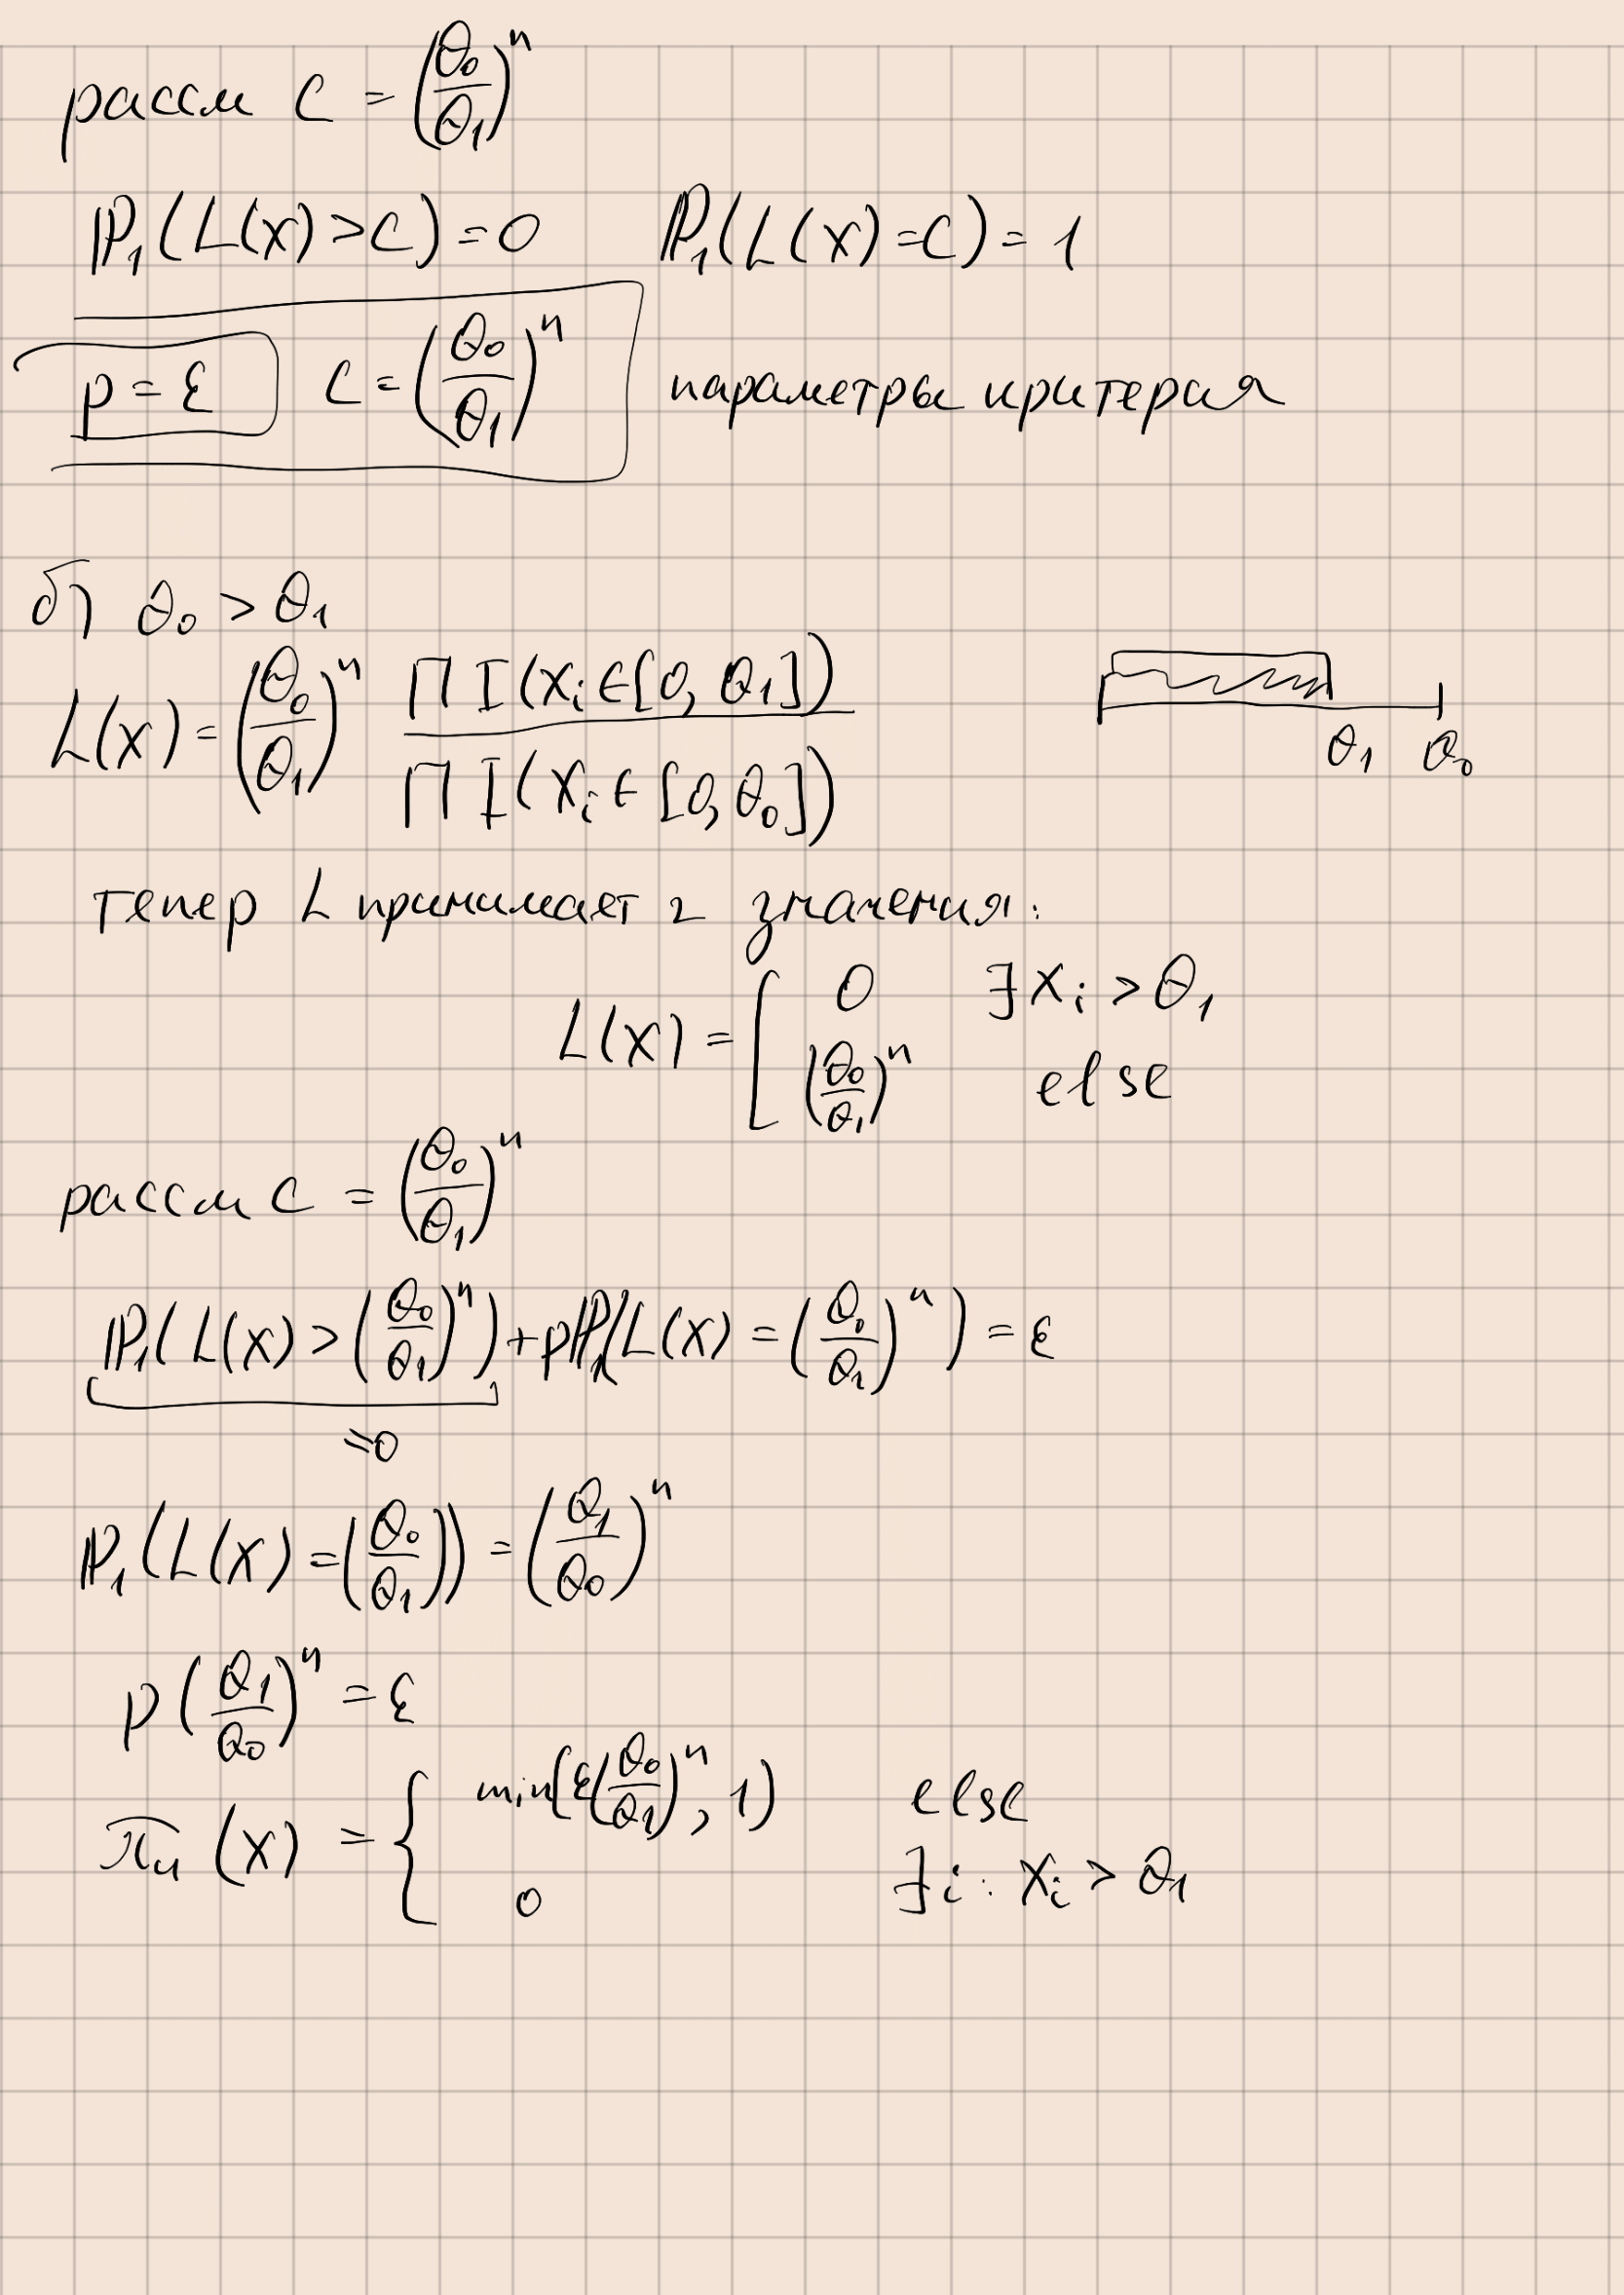 рассм C = (θ₀/θ₁)ⁿ
ℙ₁(L(x)>C)=0 ℙ₁(L(x)=C)=1
p=ε C=(θ₀/θ₁)ⁿ параметры критерия
б) θ₀ > θ₁
L(x) = (θ₀/θ₁)ⁿ ∏ I(xᵢ∈[0, θ₁]) / ∏ I(xᵢ∈[0, θ₀])
θ₁ θ₀
тепер L принимает 2 значения:
L(x) = [ 0 ∃ xᵢ > θ₁
(θ₀/θ₁)ⁿ else
рассм C = (θ₀/θ₁)ⁿ
ℙ₁(L(x) > (θ₀/θ₁)ⁿ) + pℙ₁(L(x) = (θ₀/θ₁)ⁿ) = ε
=0
ℙ₁(L(x) = (θ₀/θ₁)) = (θ₁/θ₀)ⁿ
p(θ₁/θ₀)ⁿ = ε
π̂ₙ(x) = { min(ε(θ₀/θ₁)ⁿ, 1) else
0 ∃ i: xᵢ > θ₁